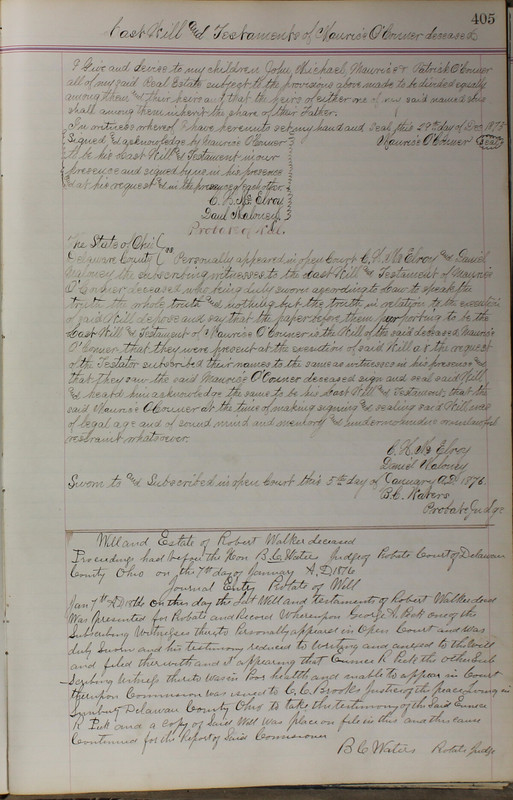 405
Last Will and Testaments of Maurice O'Conner deceased
I Give and devise to my children John, Michael, Maurice & Patrick O'Conner
all of my said Real Estate subject to the provisions above made to be divided equally
among them and their heirs and that the heirs of either one of my said named sons
shall among them inherit the share of their Father.
In witness whereof I have hereunto set my hand and seal this 29th day of Dec. 1873
Signed and acknowledge by Maurice O'Conner Maurice O'Conner (Seal)
to be his Last Will and Testament in our
presence and signed by us in his presence
and at his request and in the presence of each other
C. H. McElroy
Daniel Maloney
Probate of Will.
The State of Ohio
Delaware County ss Personally appeared in open Court C. H. McElroy and Daniel
Maloney the subscribing witnesses to the Last Will and Testament of Maurice
O'Conner, deceased, who being duly sworn according to law to speak the
truth the whole truth and nothing but the truth, in relation to the execution
of said Will depose and say that the paper before them purporting to be the
Last Will and Testament of Maurice O'Conner is the Will of the said deceased Maurice
O'Conner, that they were present at the execution of said Will at the request
of the Testator subscribed their names to the same as witnesses in his presence and
that they saw the said Maurice O'Conner deceased sign and seal said Will
and heard him acknowledge the same to be his Last Will and Testament, that the
said Maurice O'Conner at the time of making signing and sealing said Will was
of legal age and of sound mind and memory and under no undue or unlawful
restraint whatsoever.
C. H. McElroy
Daniel Maloney
Sworn to and Subscribed in open Court this 5th day of January A.D. 1876.
B. C. Waters
Probate Judge
Will and Estate of Robert Walker deceased
Proceedings had before the Hon B. C. Waters Judge of Probate Court of Delaware
County Ohio on the 7th day of January A.D 1876
Journal Entry Probate of Will
Jan 7th A.D 1876 On this day the Last Will and Testament of Robert Walker decd
Was presented for Probate and Record Whereupon George A. Peck one of the
Subscribing Witnesses thereto Personally appeared in Open Court and was
duly Sworn and his testimony reduced to Writing and annexed to the Will
and filed therewith and it appearing that R Peck the other Sub
scribing Witness thereto was in Poor health and unable to appear in Court
thereupon Commission was issued to C. C. Brooks Justice of the peace living in
Sunbury Delaware County Ohio to take the testimony of the Said
R Peck and a copy of Said Will was place on file in this and the cause
Continued for the Report of Said Commisioner
B C Waters Probate Judge